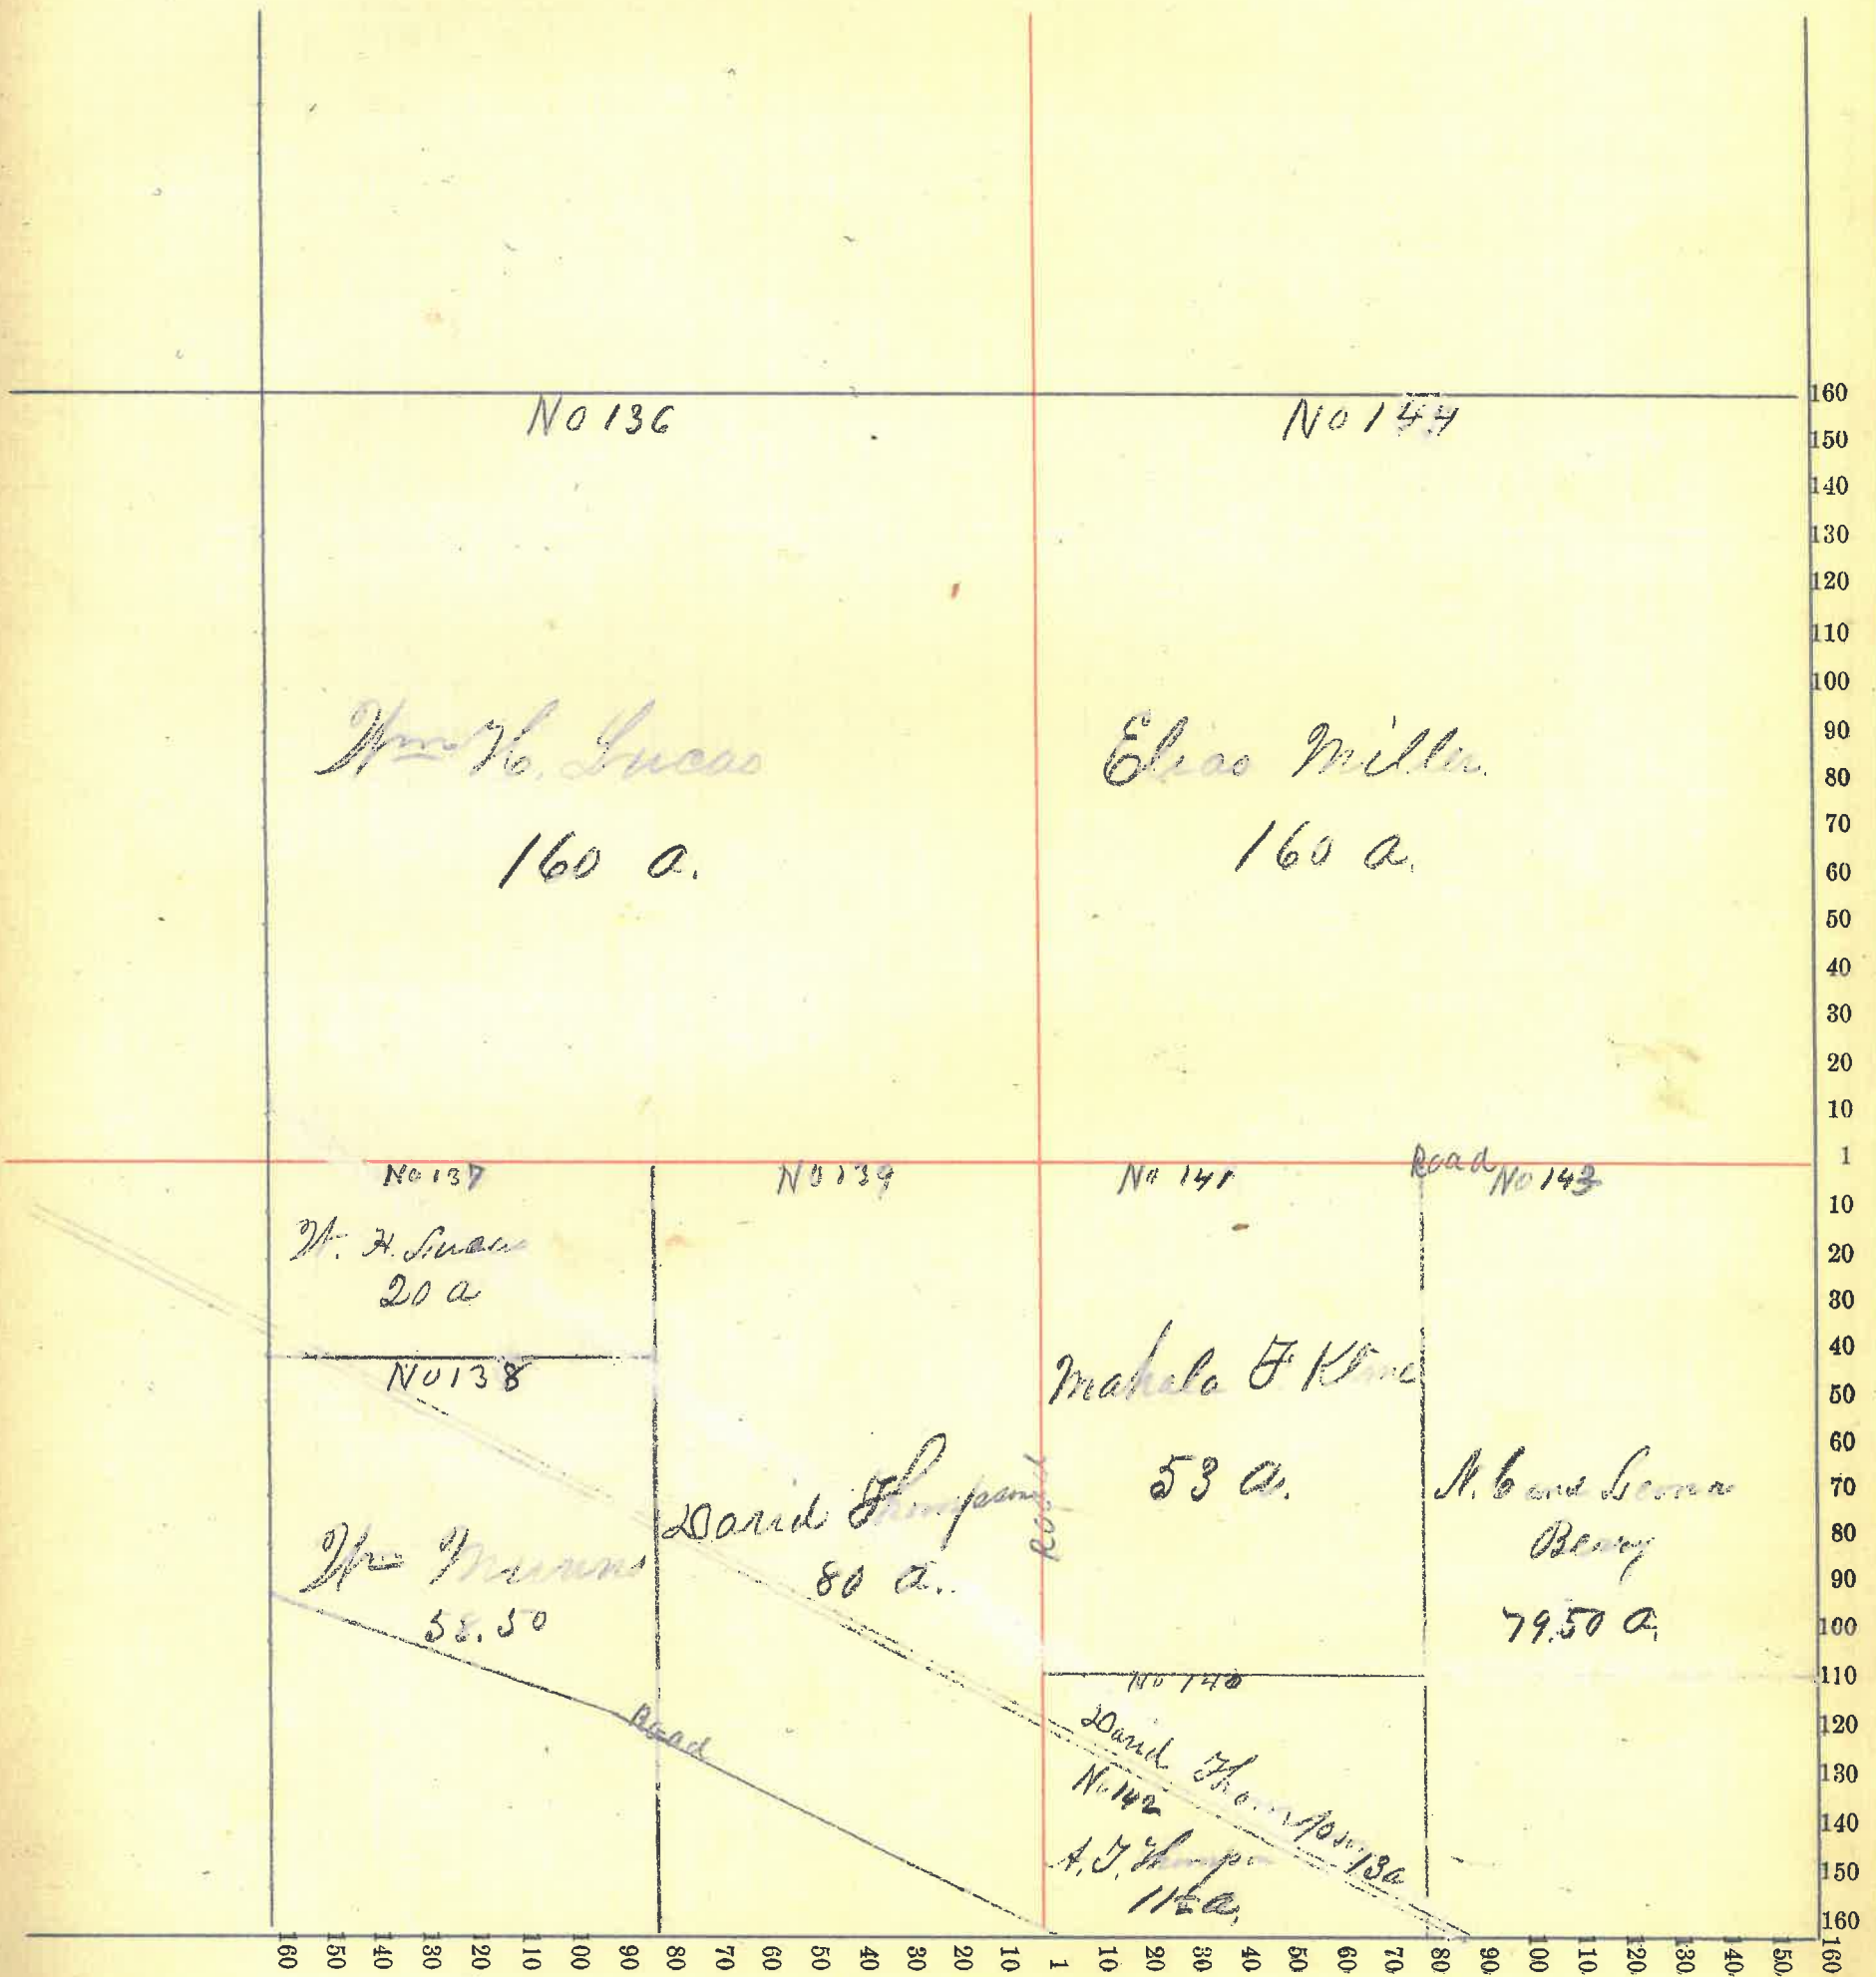 No 136
No 144
Wm H. Lucas
160 a.
Elias Miller
160 a.
160
150
140
130
120
110
100
90
80
70
60
50
40
30
20
10
1
10
20
30
40
50
60
70
80
90
100
110
120
130
140
150
160
No 137
No 139
No 141
Road
No 143
W. H. Lucas
20 a
No 138
Wm
David Thompson
80 a.
Road
Mahala F Kline
53 a.
N. C and Leona
Berry
79.50 a.
Road
No 140
David Thompson 13a
No 142
A. J. Thompson
11½ a.
160
150
140
130
120
110
100
90
80
70
60
50
40
30
20
10
1
10
20
30
40
50
60
70
80
90
100
110
120
130
140
150
160